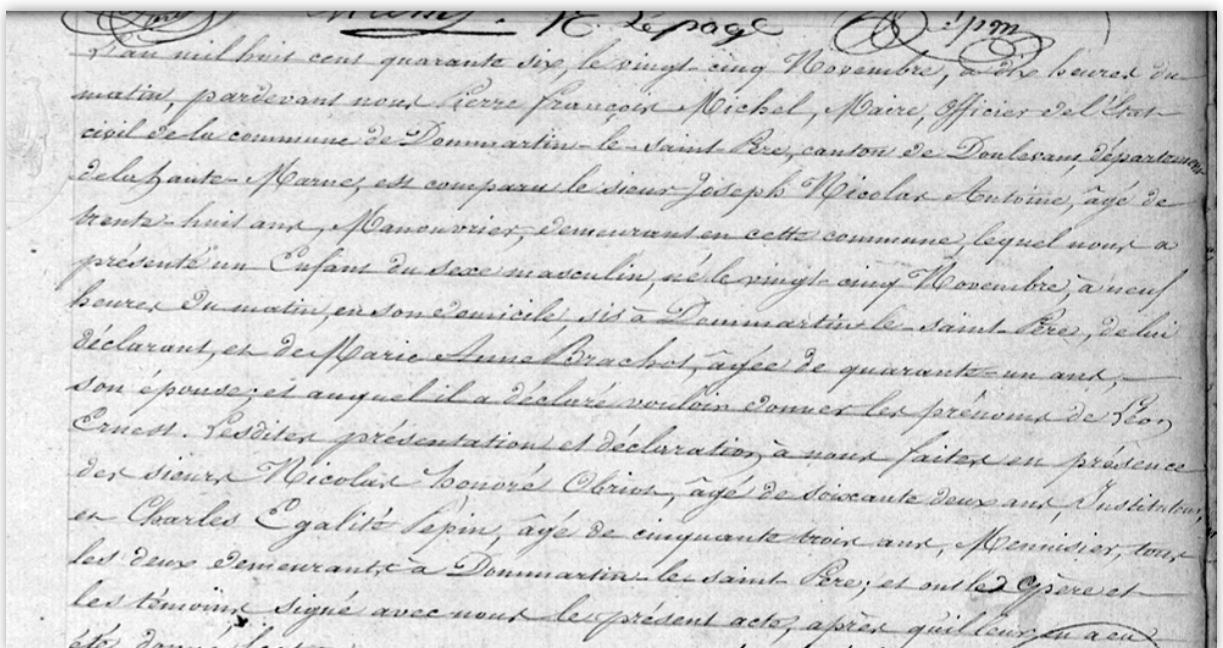 N. Lepage
L'an mil huit cent quarante six, le vingt-cinq Novembre, à dix heures du
matin, pardevant nous Pierre François Michel, Maire, Officier de l'État
civil de la commune de Dommartin-le-Saint-Père, canton de Doulevant, département
de la haute-Marne, est comparu le sieur Joseph Nicolas Antoine, âgé de
trente-huit ans, Manouvrier, demeurant en cette commune, lequel nous a
présenté un Enfant du sexe masculin, né le vingt-cinq Novembre, à neuf
heures du matin, en son domicile, sis à Dommartin-le-saint-Père, de lui
déclarant, et de Marie Anne Brachot, âgée de quarante-un ans,
son épouse; et auquel il a déclaré vouloir donner les prénoms de Léon
Ernest. Lesdites présentation et déclaration à nous faites en présence
des sieurs Nicolas honoré Obriot, âgé de soixante deux ans, Instituteur,
et Charles Egalité Pepin, âgé de cinquante trois ans, Menuisier, tous
les deux demeurants à Dommartin-le-saint-Père; et ont les père et
les témoins signé avec nous le présent acte, après qu'il leur en a eu
été donné